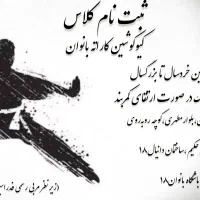 ثبت نام کلاس
کیوکوشین کاراته بانوان
ین خردسال تا بزرگسال
ک در صورت ارتقای کمربند
ن، بلوار مطهری، کوچه رودبروی
حکیم ساختمان دانیال ۱۸
باشگاه بانوان ۱۸
(زیر نظر مربی رسمی فدراسیو